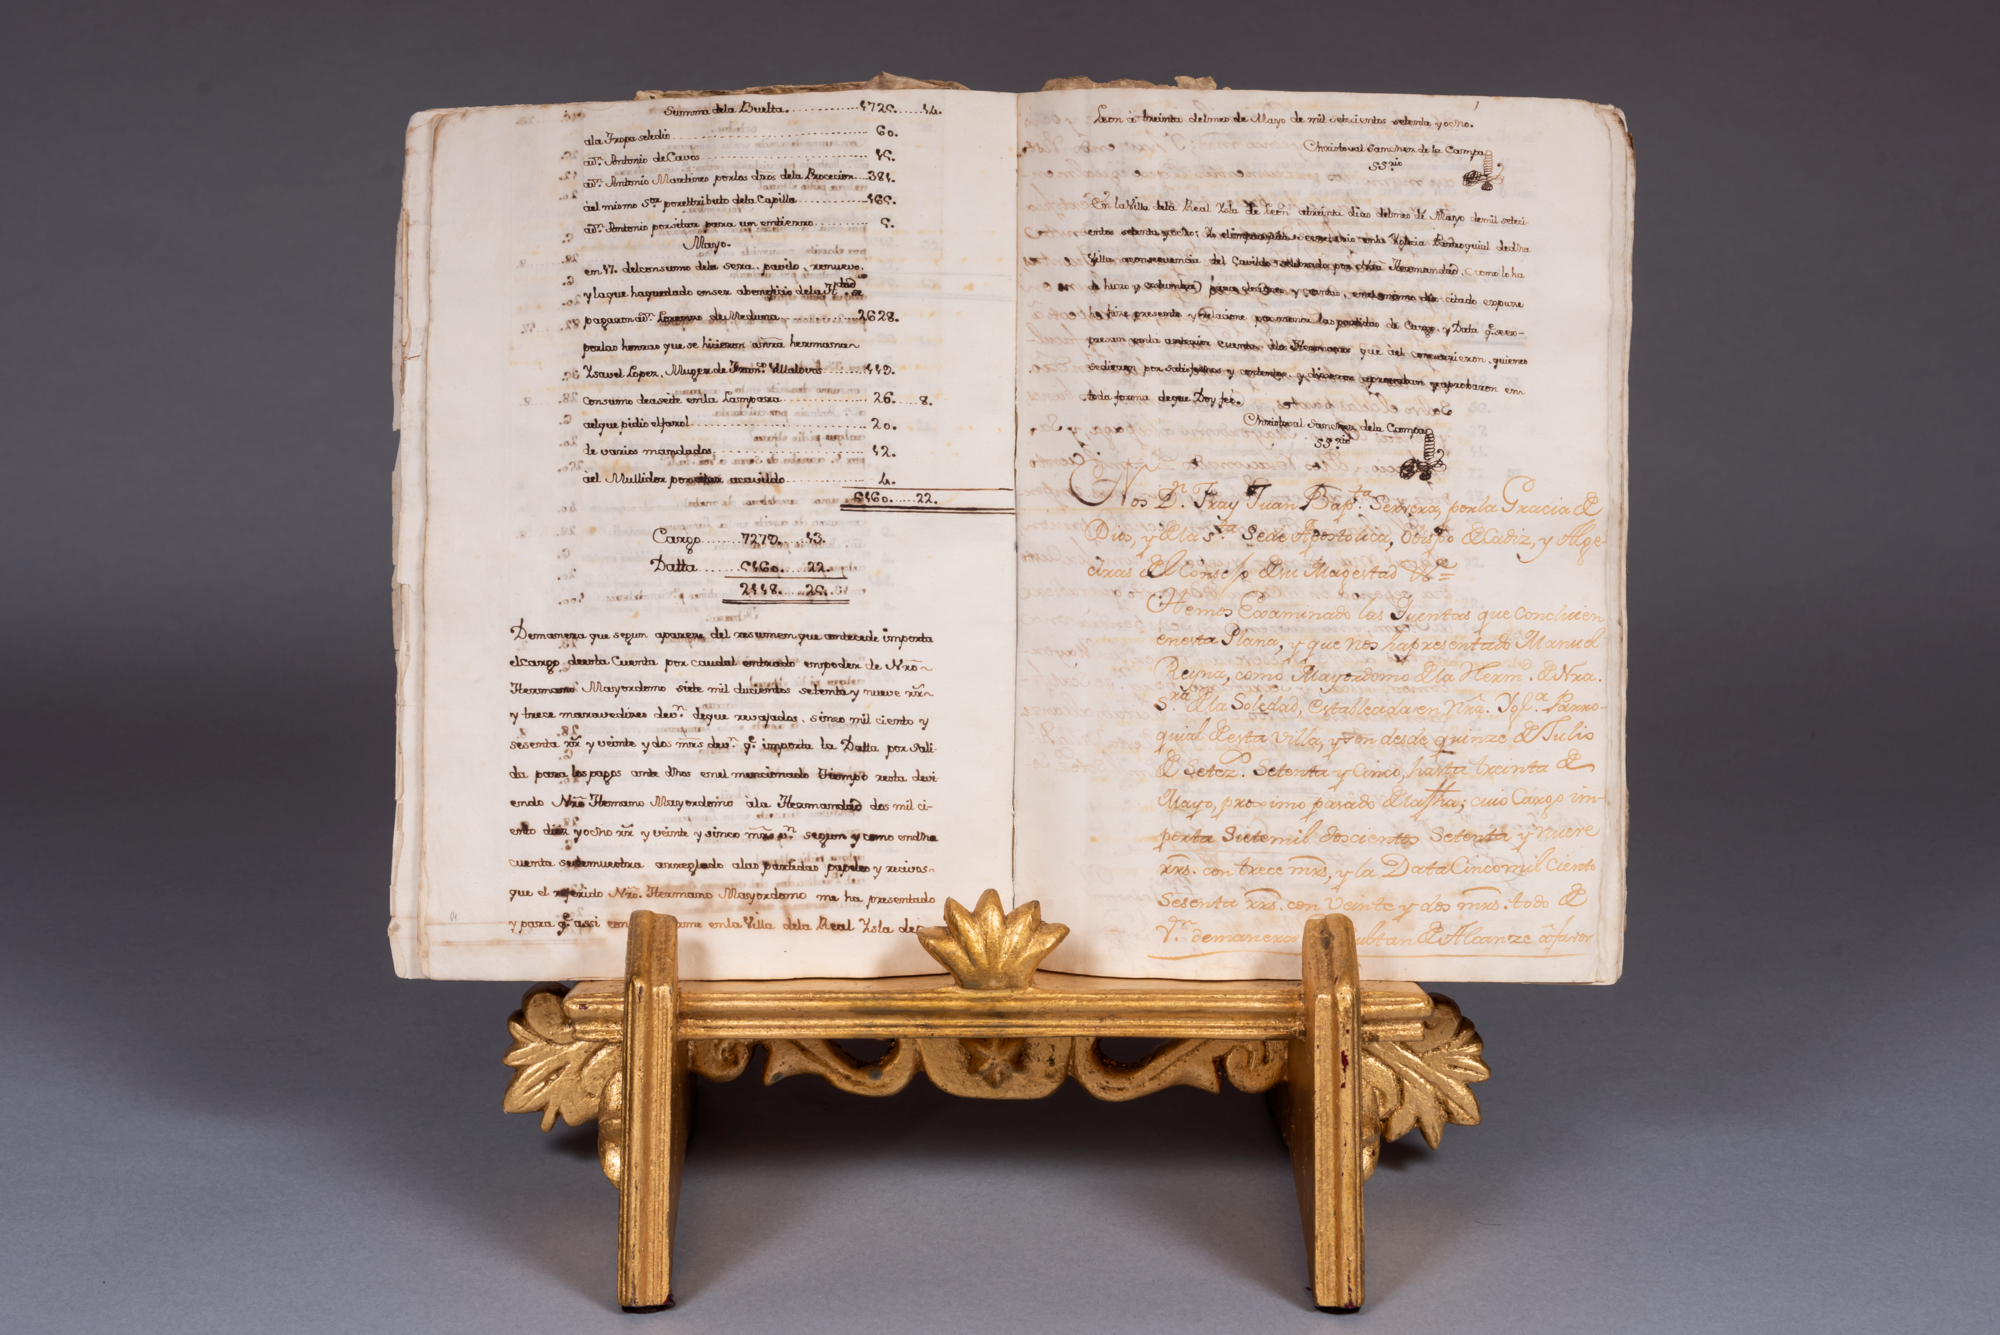 Summa dela Buelta 1725 14.
ala Tropa seledio 60.
àdn. Antonio de Cavos 15.
àdn. Antonio Martines porlos dros dela Procecion 381.
àel mismo Sor. porelttributo dela Capilla 165.
àdn. Antonio porsitar para un enttierro 5.
Mayo.
en 17. delconsumo dela sera, pavilo, renuevo,
y laque haquedado enser abeneficio dela Hdad se
pagaron àdn. Lorenzo de Medina 2628.
porlas honras que se hicieron anrã hermana
Ysavel Lopez, Muger de Franco. Villalovos 113.
Consumo deaseite enla Lampara 26. 8.
aelque pidio elfarol 20.
de varios mandados 12.
àel Mullidor porsitar acavildo 4.
5160. 22.
Cargo 7279. 13.
Datta 5160. 22.
2118. 25.
Demanera que segun aparece del resumen que antecede importa
el cargo deesta Cuenta por caudal entrado enpoder de Nrõ
Hermano Mayordomo siete mil ducientos setenta y nueve rr
y trece maravedizes devn. deque revajados, sinco mil ciento y
sesenta rr y veinte y dos mrs devn. qe. importa la Datta por sali
da para los pagos ante dhos enel mencionado Tiempo resta devi
endo Nrõ Hemano Mayordomo àla Hermandad dos mil ci-
ento diez yocho rr y veinte y sinco mrs vn. segun y como endha
cuenta sedemuestra arreglado alas partidas papeles y recivos
que el referido Nrõ. Hermano Mayordomo me ha presentado
y para qe. assi conste firme enla Villa dela Real Ysla de
Leon à treinta delmes de Mayo de mil setecientos setenta yocho.
Christoval Sanchez de la Campa
SSrio
En la Villa dela Real Ysla de Leon atreinta dias delmes de Mayo demil seteci
entos setenta yocho; Yo elimfraescripto Secretario enla Yglecia Parroquial dedha
Villa aconsecuencia del Cavildo selebrado por dicha Hermandad, (como lo ha
de huzo y costumbre) para eleciones y cuentas, enelmismo dia citado expuse
hè hize presente y relacione pormenor las partidas de Cargo, y Data qe. seex-
presan enla anterior cuenta alos Hermanos que àel concurrieron, quienes
sedieron por satisfechos y contentos, y dixeron aprovaban yaprobaron en
toda forma deque Doy feè.
Christoval Sanchez dela Campa
SSrio
Nos Dn. Fray Juan Bapta. Servera, porla Gracia de
Dios, y dela Sta. Sede Apostolica, Obispo de Cadiz, y Alge-
ciras del Consejo desu Magestad &ª
Hemos Examinado las Quentas que concluien
enesta Plana, y que Nos hapresentado Manuel
Reyna, como Mayordomo dela Herm. de Nra.
Sra. dela Soledad, establecida en Nra. Igla. Parro-
quial deesta Villa, yson desde quinze de Julio
de Setez. Setenta y Cinco, hasta treinta de
Mayo, proximo pasado delaffha; cuio Cargo im-
porta Sietemil doscientos Setenta y nueve
rrs. con trece mrs, y la Data Cincomil Ciento
Sesenta rrs. con veinte y dos mrs. todo de
Vn. demanera de Alcanze àfavor